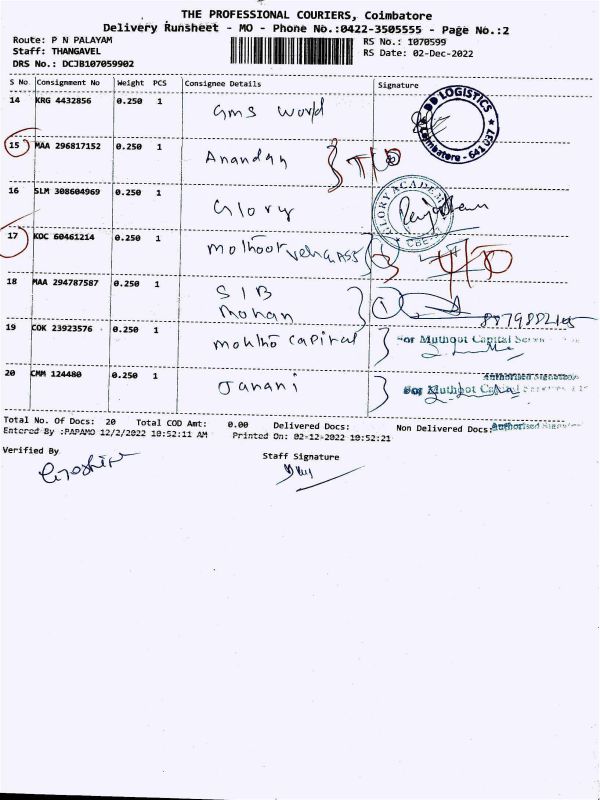 THE PROFESSIONAL COURIERS, Coimbatore
Delivery Runsheet - MO - Phone No.:0422-3505555 - Page No.:2
Route: P N PALAYAM
RS No.: 1070599
Staff: THANGAVEL
RS Date: 02-Dec-2022
DRS No.: DCJB107059902
S No. Consignment No Weight PCS Consignee Details Signature
14 KRG 4432856 0.250 1 Gms World
DD LOGISTICS
Coimbatore - 641 037
15 MAA 296817152 0.250 1 Anandan
16 SLM 308604969 0.250 1 Glory
GLORY ACADEMY
CBE-37
17 KOC 60461214 0.250 1
18 MAA 294787587 0.250 1 SIB
Mohan
19 COK 23923576 0.250 1 capital
For Muthoot Capital
Authorised Signatory
20 CMM 124480 0.250 1 Janani
For Muthoot Capital
Authorised
Total No. Of Docs: 20 Total COD Amt: 0.00 Delivered Docs: Non Delivered Docs:
Entered By :PAPAMO 12/2/2022 10:52:11 AM Printed On: 02-12-2022 10:52:21
Verified By
Staff Signature